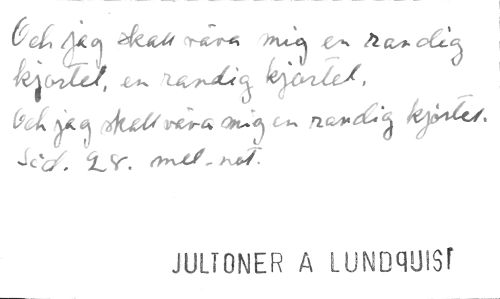 Och jag skall väva mig en randig
kjortel, en randig kjortel.
Och jag skall väva mig en randig kjortel.
Sid. 28. mel-not.
JULTONER A LUNDQUIST